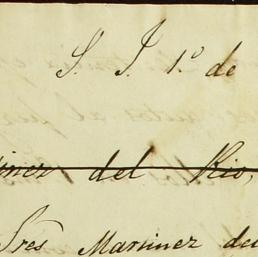 S. J. 1.º de
inez del Rio,
Sres Martinez del